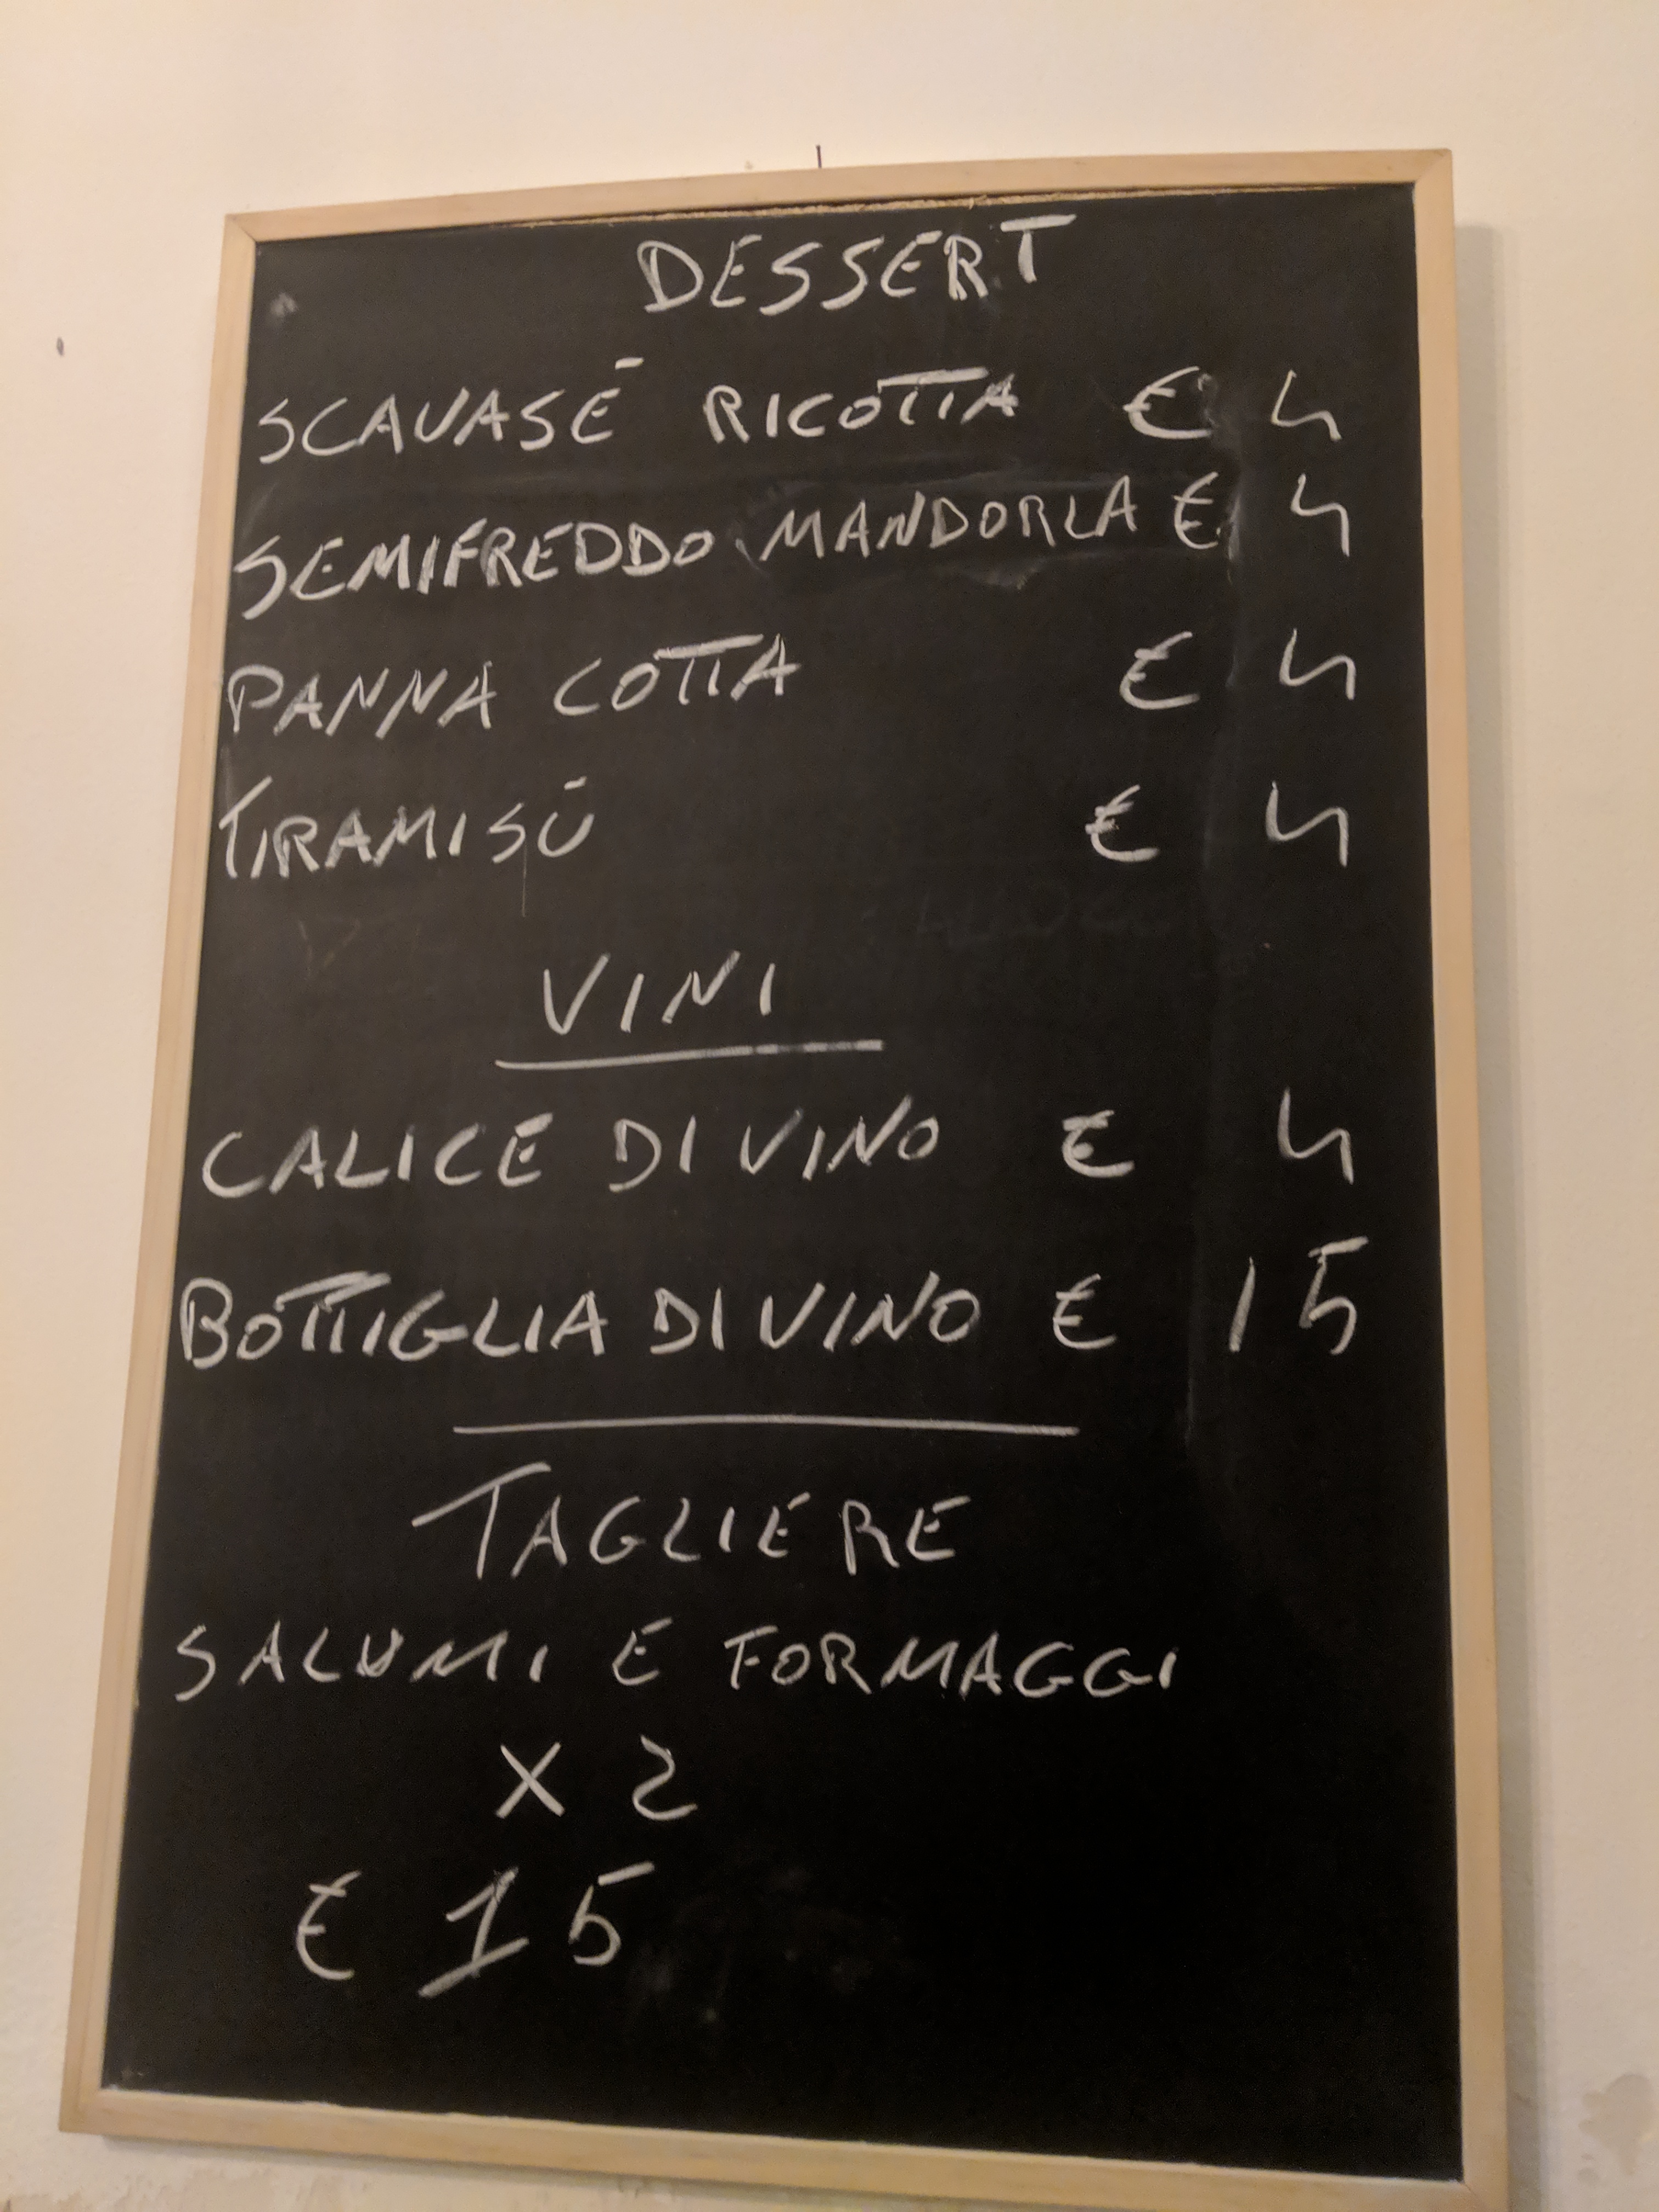 DESSERT
SCAVASÉ RICOTTA € 4
SEMIFREDDO MANDORLA € 4
PANNA COTTA € 4
TIRAMISÚ € 4
VINI
CALICE DI VINO € 4
BOTTIGLIA DI VINO € 15
TAGLIERE
SALUMI E FORMAGGI
X 2
€ 15